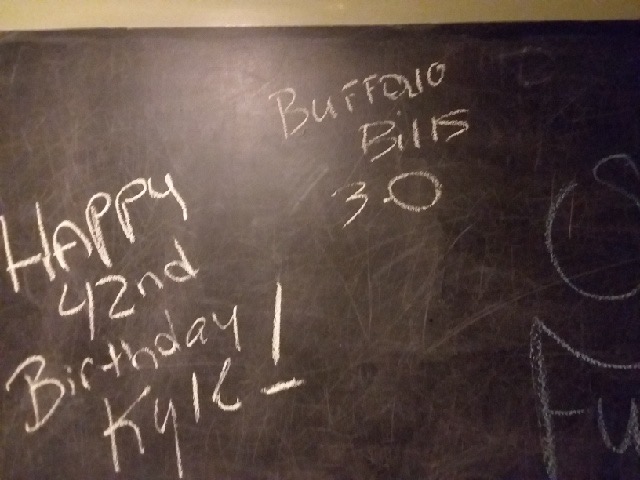 Buffalo
Bills
3-0
HAPPY
42nd
Birthday
Kyle!
Fu